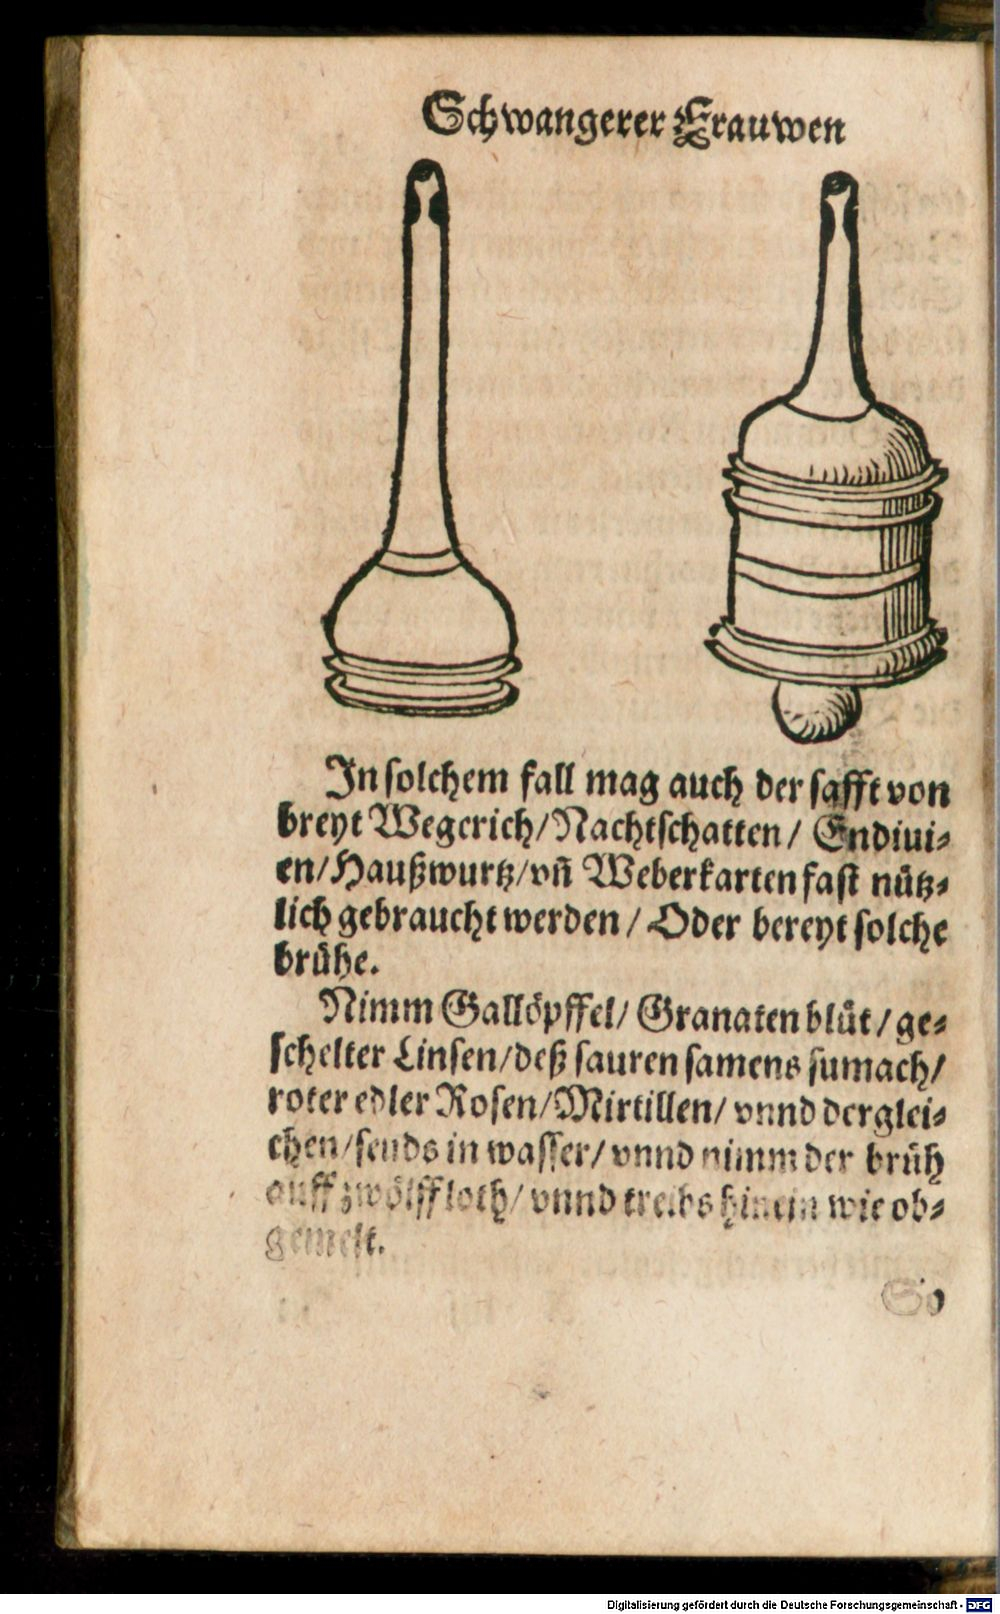 Schwangerer Frauwen
In solchem fall mag auch der safft von
breyt Wegerich/Nachtschatten/ Endiui⸗
en/Haußwurtz/vñ Weberkarten fast nuͤtz⸗
lich gebraucht werden/ Oder bereyt solche
bruͤhe.
Nimm Galloͤpffel/ Granaten bluͤt/ge⸗
schelter Linsen/deß sauren samens sumach/
roter edler Rosen/Mirtillen/ vnnd derglei⸗
chen/seuds in wasser/ vnnd nimm der bruͤh
auff zwoͤlff loth/ vnnd treibs hinein wie ob⸗
gemelt.
So
Digitalisierung gefördert durch die Deutsche Forschungsgemeinschaft - DFG